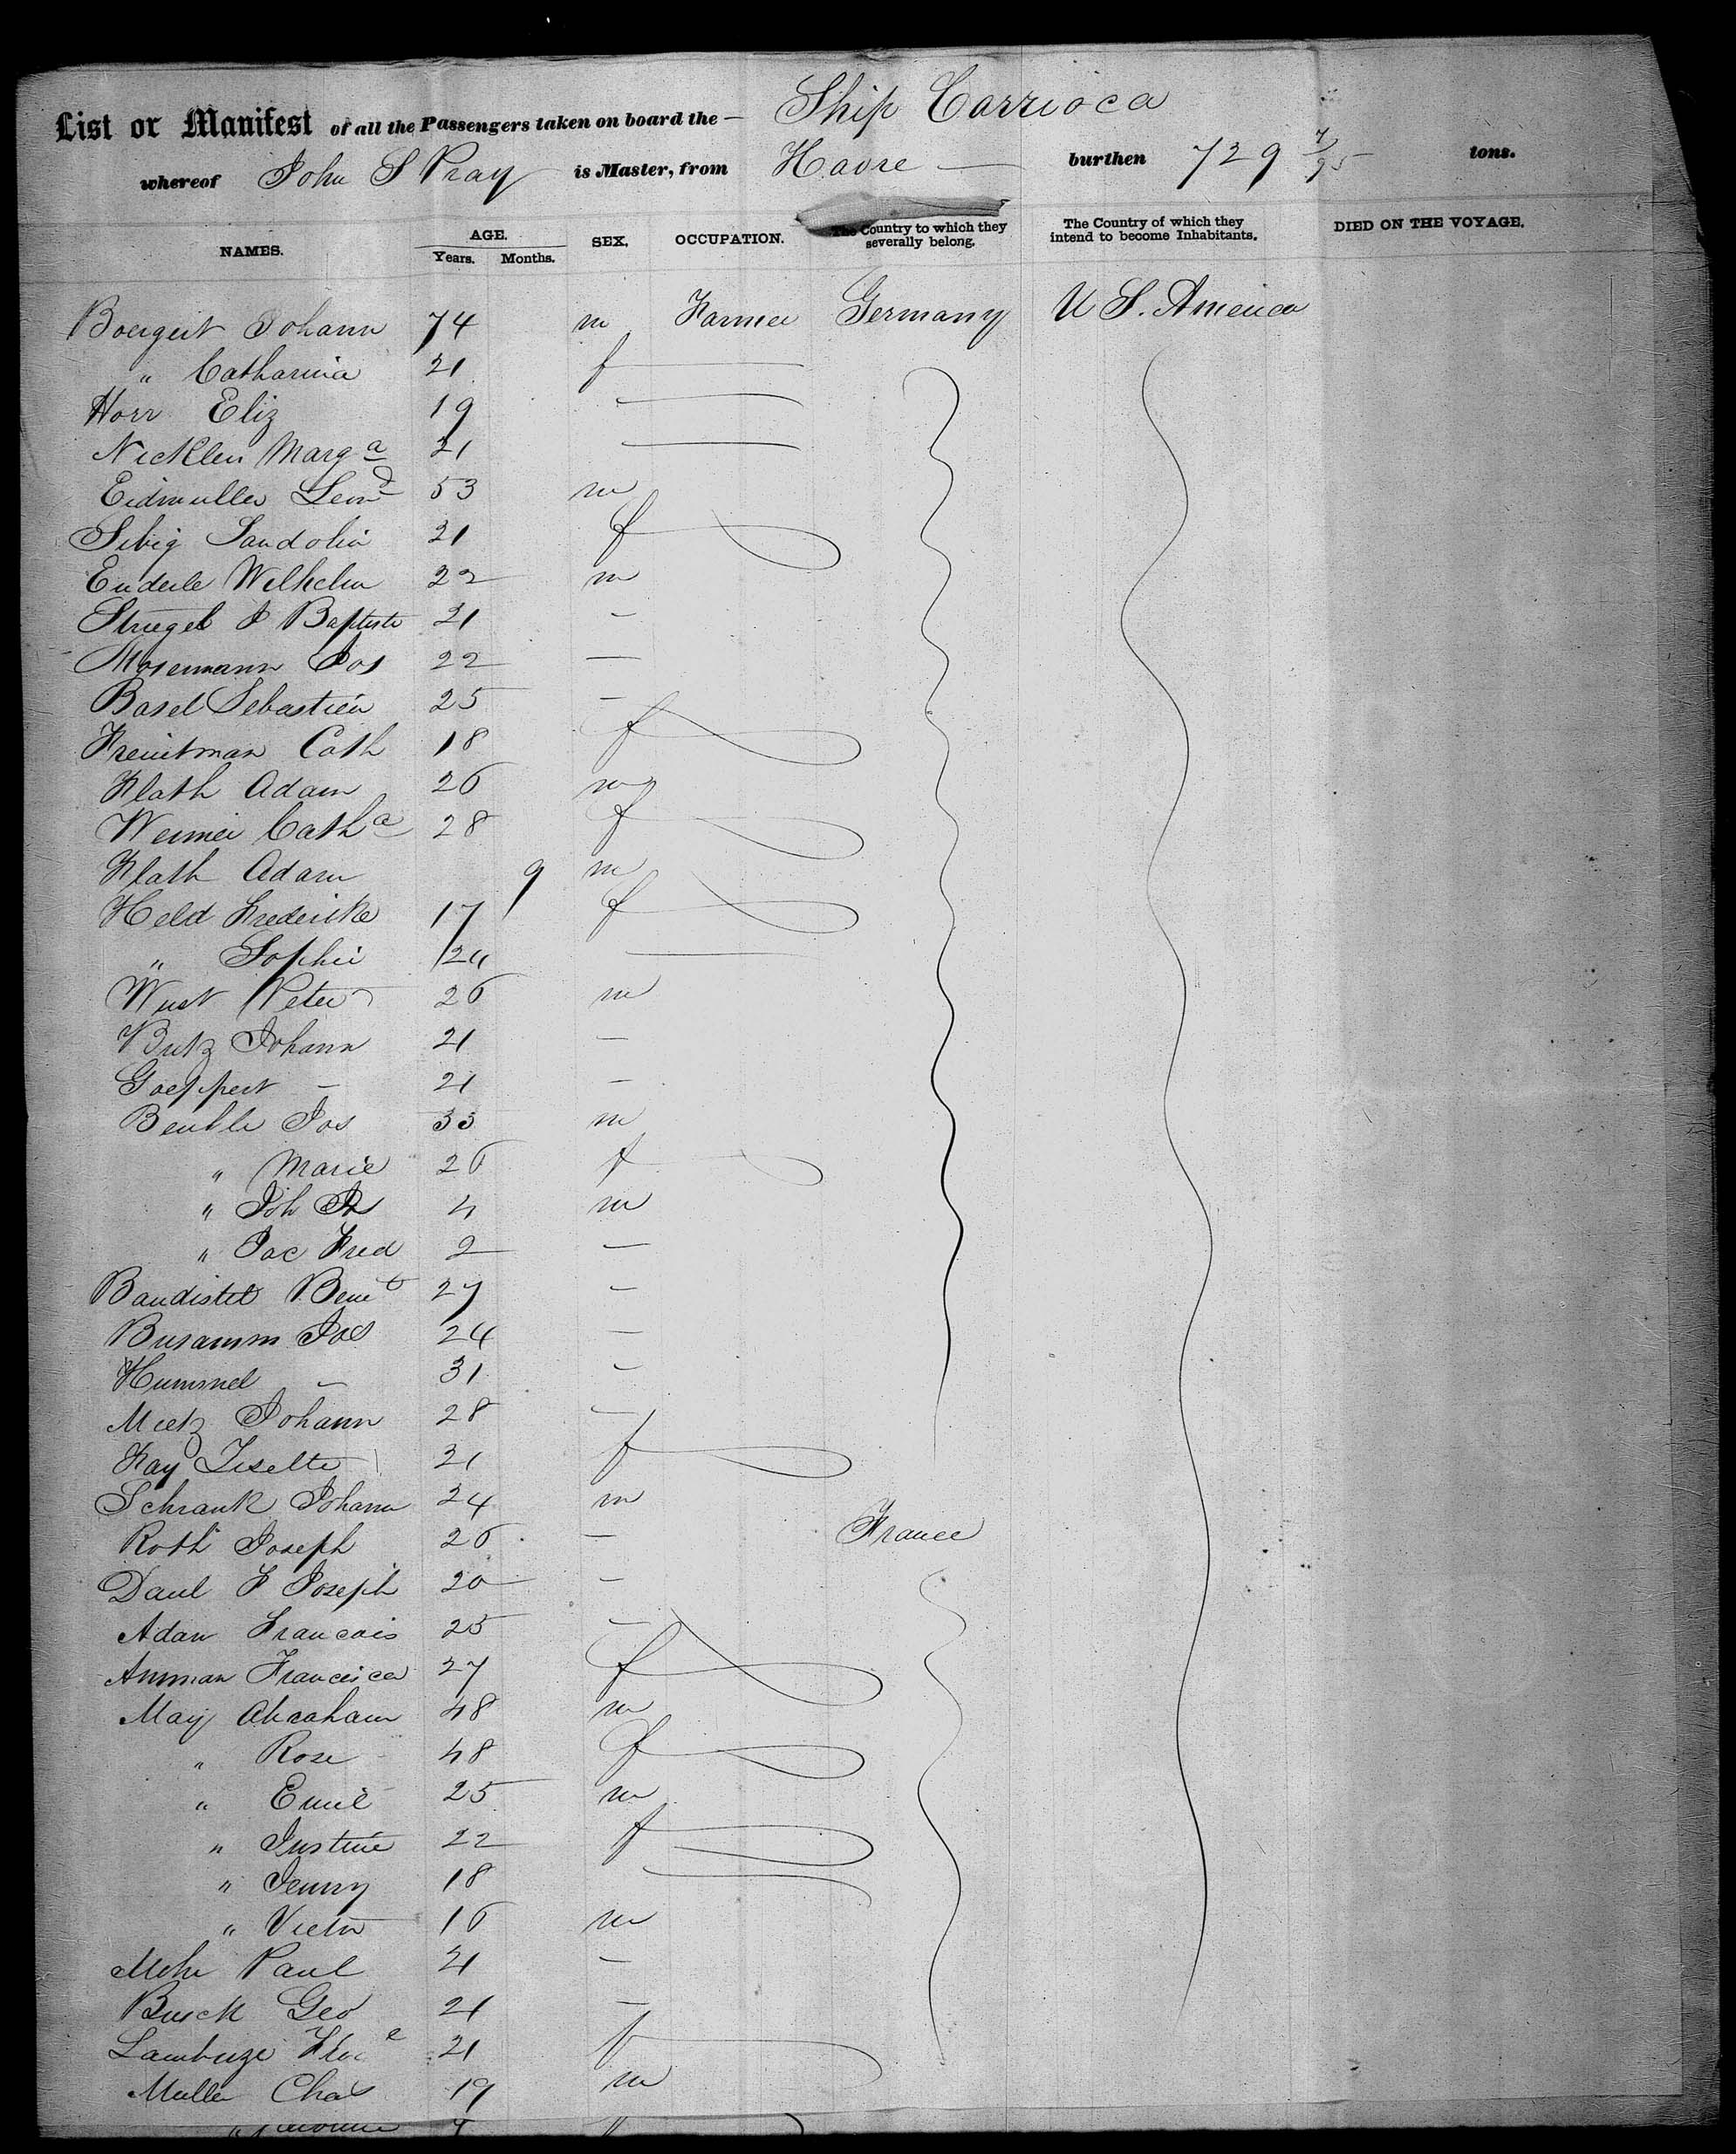 List or Manifest of all the Passengers taken on board the — Ship Carrioca
whereof John S Pray is Master, from Havre — burthen 729 7/95 tons.
NAMES. AGE. Years. Months. SEX. OCCUPATION. The Country to which they severally belong. The Country of which they intend to become Inhabitants. DIED ON THE VOYAGE.
Johann 74 m Farmer Germany U S. America
" Catharina 21 f
Horr Eliz 19
Nicklen Marga 21
Eidmuller Leond 53 m
Sibig 21 f
Enderle Wilhelm 22 m
Struegel J Baptiste 21 -
Mosemann Jos 22 —
Basel Sebastien 25 -
Freuitman Cath 18 f
Flath Adam 26 m
Weimer Catha 28 f
Flath Adam 9 m
Held Fredericke 17 f
" Sophie 24
Wust Peter 26 m
Butz Johann 21 -
Goeppert - 21 -
Beuble Jos 33 m
" Marie 26 f
" Joh 4 m
" Jac Fred 2 —
Baudistel Benet 27 -
Busamm Jos 24 -
Hummel - 31 -
Metz Johann 28 -
Fay Liselte 21 f
Schrank Johann 24 m
Roth Joseph 26 - France
Daul F Joseph 20 -
Adam Francois 25 -
Amman Francisca 27 f
May Abraham 48 m
" Rose 48 f
" Emil 25 m
" Justine 22 f
" Jenny 18
" Victor 16 m
Mohr Paul 21 -
Busck Geo 21 -
21 f
Muller Chas 19 m